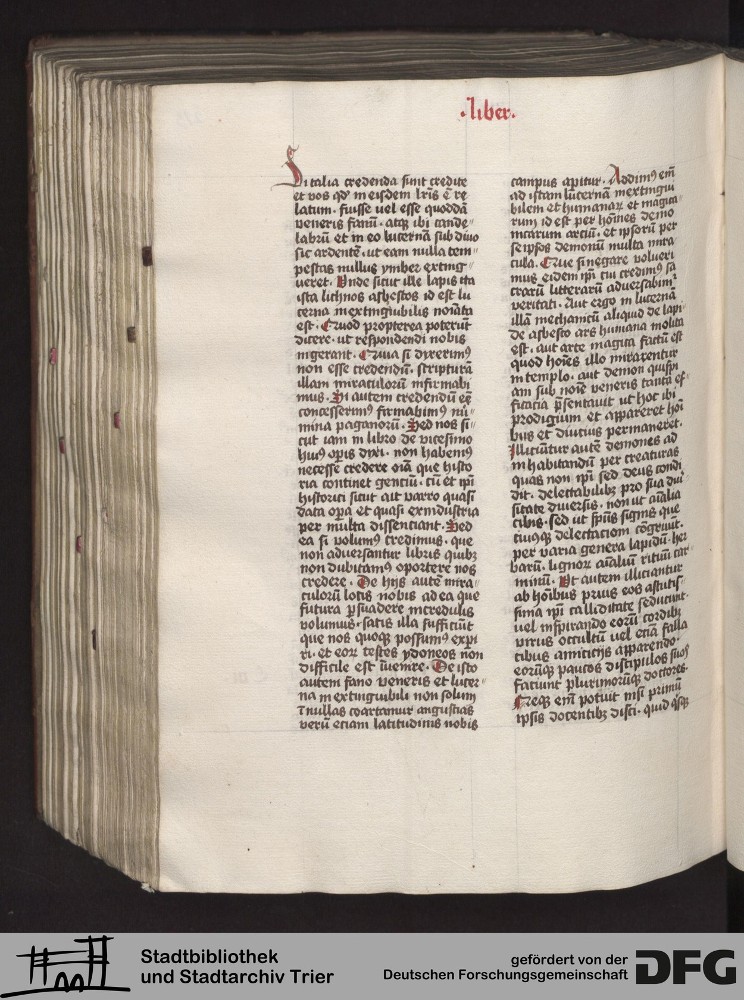 ·liber·
Si talia credenda sunt credite
et vos qd' in eisdem lr̄is ē re
latum· fuisse uel esse quoddā
veneris fanū· atq; ibi cande
labrū et in eo lucernā sub diuo
sic ardentē· ut eam nulla tem
pestas nullus ymber exting
ueret· Vnde sicut ille lapis ita
ista lichnos asbestos id est lu
cerna inextinguibilis noīata
est· Quod propterea poterūt
dicere· ut respondendi nobis
ingerant· Quia si dixerimꝰ
non esse credendū· scripturā
illam miraculorū infirmabi
mus· Si autem credendū eē
concesserimꝰ firmabimꝰ nu
mina paganorū· Sed nos si
cut iam in libro de vicesimo
huiꝰ oꝑis dixi· non habemꝰ
necesse credere oīa que histo
ria continet gentiū· cū et ip̄i
historici sicut ait varro quasi
data oꝑa et quasi ex industria
per multa dissentiant· Sed
ea si volumꝰ credimus· que
non aduersantur libris quibꝫ
non dubitamꝰ oportere nos
credere· De hijs autē mira
culorū locis nobis ad ea que
futura ꝑsuadere incredulis
volumus· satis illa sufficiūt
que nos quoqꝫ possumꝰ expi
ri· et eoꝝ testes ydoneos non
difficile est īuenire· De isto
autem fano veneris et lucer
na inextinguibili non solum
ī nullas coartamur angustias
verū etiam latitudinis nobis
campus aꝑitur· Addimꝰ em̄
ad istam lucernā inextingui
bilem et humanaꝝ et magica
rum id est per hoīnes demo
nicarum arciū· et ipsorū per
seip̄sos demonū multa mira
cula· Que si negare volueri
mus eidem ip̄i cui credimꝰ sa
crarū litterarū aduersabimr̄
veritati· Aut ergo in lucernā
illā mechanicū aliquid de lapi
de asbesto ars humana molita
est· aut arte magica factū est
quod hoīes illo mirarentur
in templo· aut demon quispi
am sub noīe veneris tanta ef
ficacia p̄sentauit ut hoc ibi
prodigium et appareret hoī
bus et diucius permaneret·
Illiciūtur autē demones ad
inhabitandū per creaturas
quas non ip̄i sed deus condi
dit· delectabilibꝫ pro sua diu̾
sitate diuersis· non ut aīalia
cibis· sed ut sp̄ūs signis que
cuiusqꝫ delectacioni cōgruūt·
per varia genera lapidū· her
barū· lignoꝝ aīaliū rituū car
minū· Vt autem illiciantur
ab hoībus prius eos astutis
sima ip̄i calliditate seducunt·
uel inspirando eorū cordibꝫ
virus occultū uel eciā falla
cibus amiciciis apparendo·
eorūqꝫ paucos discipulos suos
faciunt plurimorūqꝫ doctores·
Neqꝫ em̄ potuit nisi primū
ip̄sis docentibꝫ disci· quid qͥsqꝫ
Stadtbibliothek
und Stadtarchiv Trier
gefördert von der
Deutschen Forschungsgemeinschaft
DFG